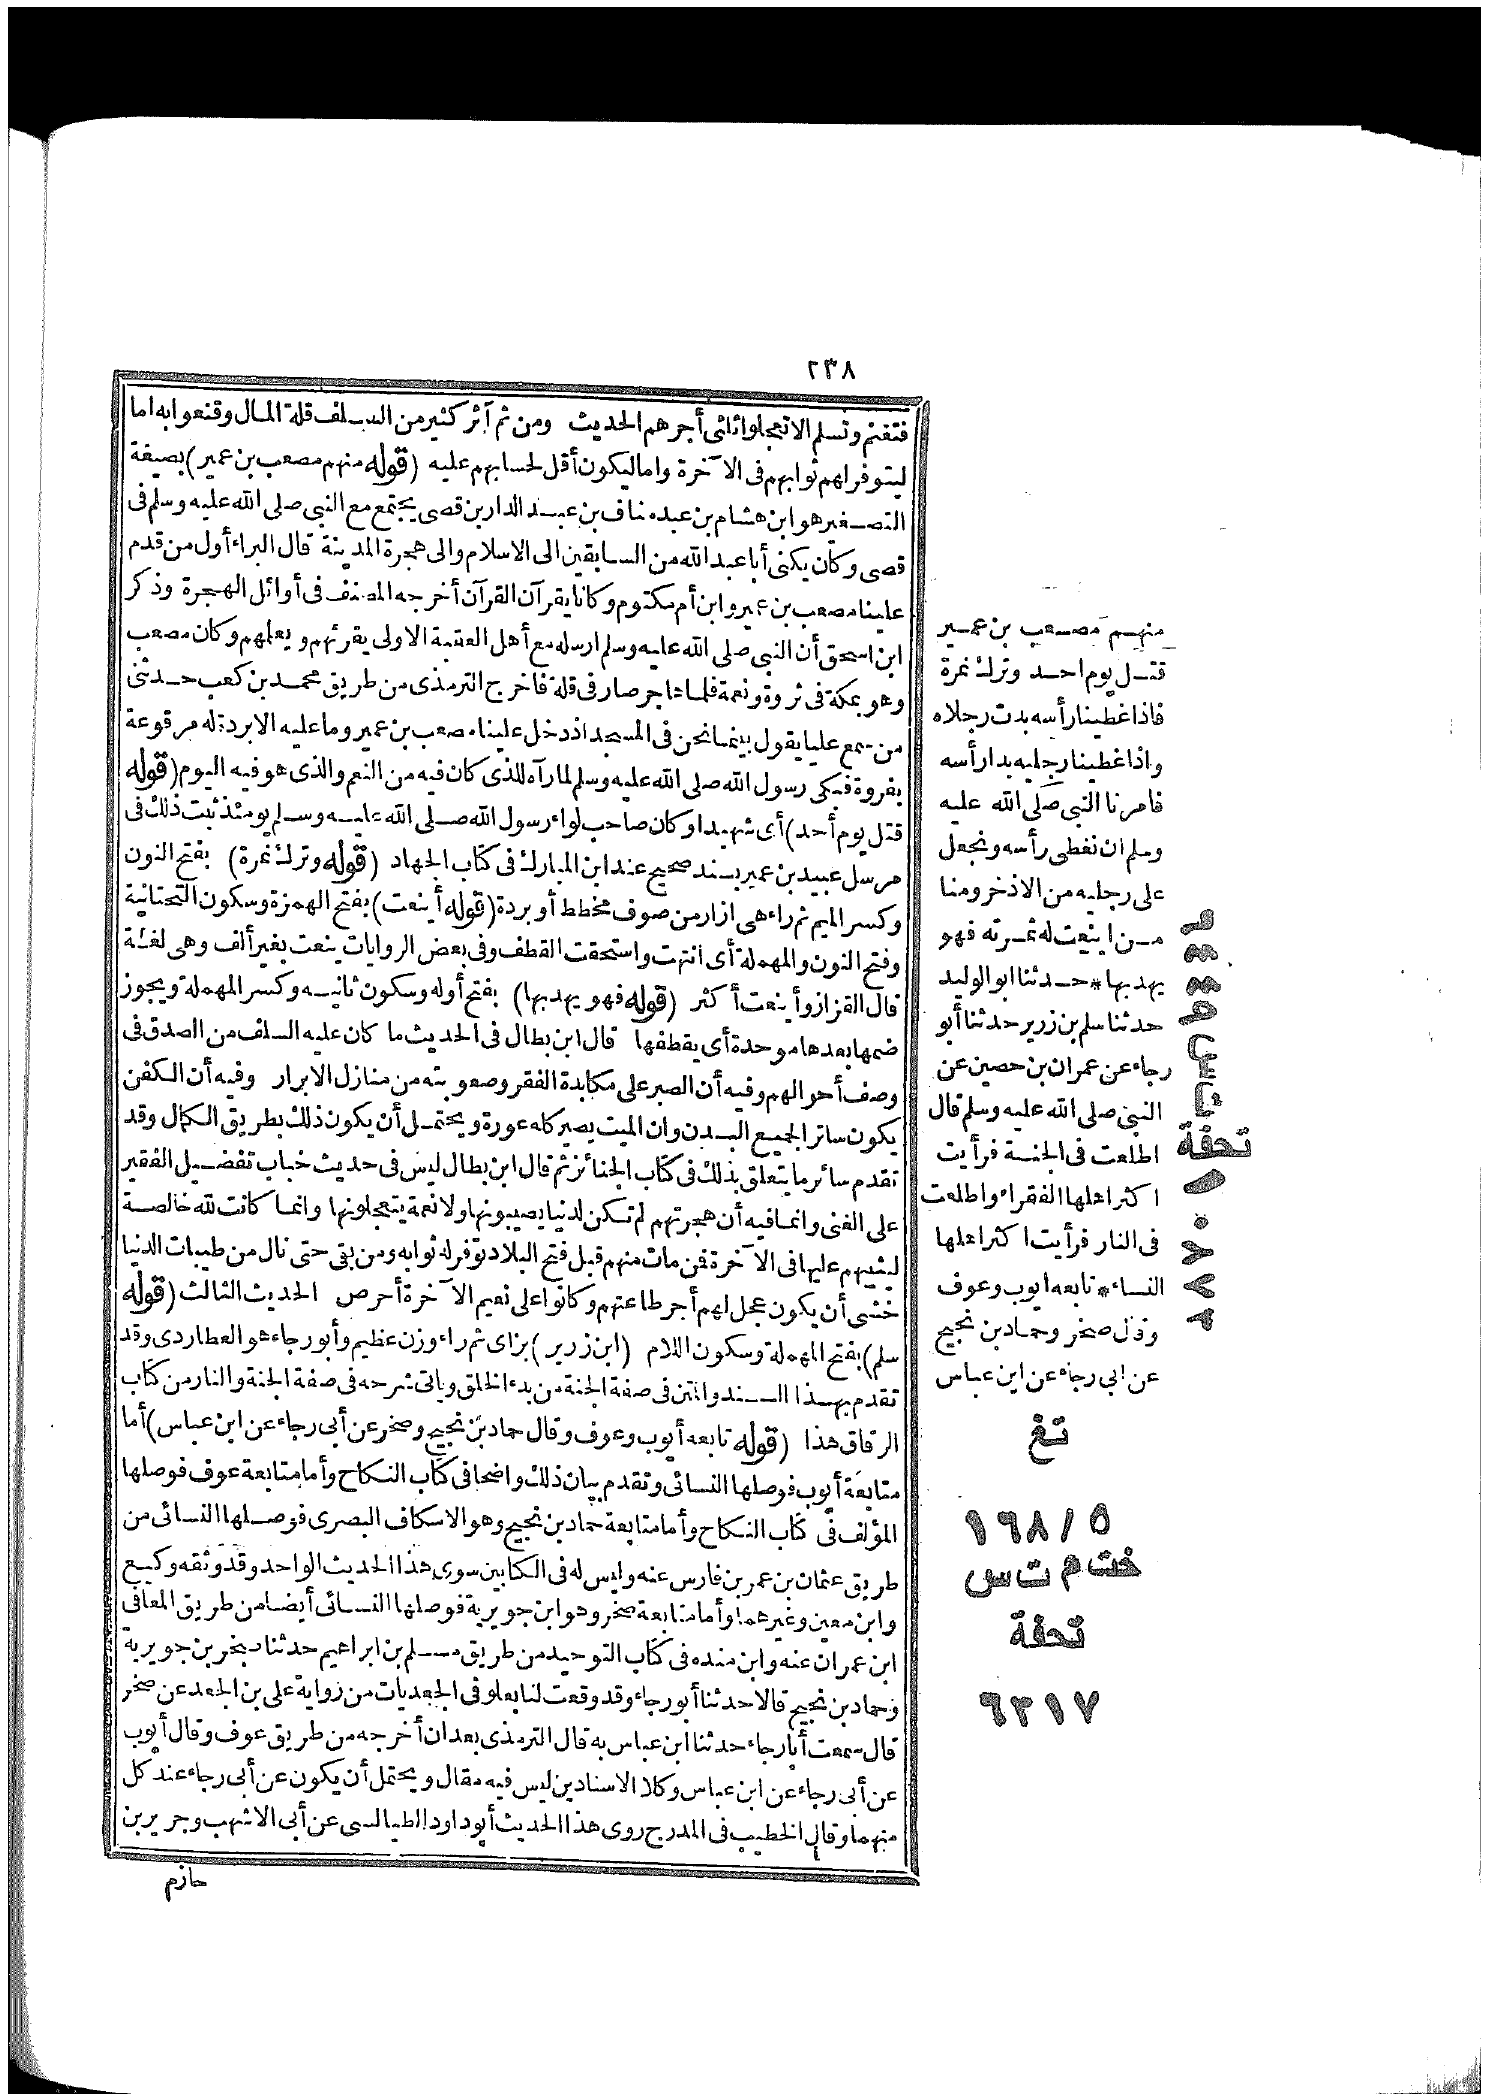 ٢٣٨
فتغنم وتسلم الا تعجلوا ثلثى أجرهم الحديث ومن ثم آثر كثير من السلف قلة المال وقنعوا به اما
ليتوفر لهم ثوابهم فى الآخرة واما ليكون أقل لحسابهم عليه (قوله منهم مصعب بن عمير) بصيغة
التصغير هو ابن هشام بن عبد مناف بن عبد الدار بن قصى يجتمع مع النبى صلى الله عليه وسلم فى
قصى وكان يكنى أبا عبد الله من السابقين الى الاسلام والى هجرة المدينة قال البراء أول من قدم
علينا مصعب بن عمير وابن أم مكتوم وكانا يقرآن القرآن أخرجه المصنف فى أوائل الهجرة وذكر
ابن اسحق أن النبى صلى الله عليه وسلم ارسله مع أهل العقبة الاولى يقرئهم ويعلمهم وكان مصعب
وهو بمكة فى ثروة ونعمة فلما هاجر صار فى قلة فاخرج الترمذى من طريق محمد بن كعب حدثنى
من سمع عليا يقول بينما نحن فى المسجد اذ دخل علينا مصعب بن عمير وما عليه الا بردة له مرقوعة
بفروة فبكى رسول الله صلى الله عليه وسلم لما رآه للذى كان فيه من النعم والذى هو فيه اليوم (قوله
قتل يوم أحد) أى شهيدا وكان صاحب لواء رسول الله صلى الله عليه وسلم يومئذ ثبت ذلك فى
مرسل عبيد بن عمير بسند صحيح عند ابن المبارك فى كتاب الجهاد (قوله وترك نمرة) بفتح النون
وكسر الميم ثم راء هى ازار من صوف مخطط أو بردة (قوله أينعت) بفتح الهمزة وسكون التحتانية
وفتح النون والمهملة أى انتهت واستحقت القطف وفى بعض الروايات ينعت بغير ألف وهى لغة
قال القزاز وأينعت أكثر (قوله فهو يهدبها) بفتح أوله وسكون ثانيه وكسر المهملة ويجوز
ضمها بعدها موحدة أى يقطفها قال ابن بطال فى الحديث ما كان عليه السلف من الصدق فى
وصف أحوالهم وفيه أن الصبر على مكابدة الفقر وصعوبته من منازل الابرار وفيه أن الكفن
يكون ساترا لجميع البدن وان الميت يصير كله عورة ويحتمل أن يكون ذلك بطريق الكمال وقد
تقدم سائر ما يتعلق بذلك فى كتاب الجنائز ثم قال ابن بطال ليس فى حديث خباب تفضيل الفقير
على الغنى وانما فيه أن هجرتهم لم تكن لدنيا يصيبونها ولا نعمة يتعجلونها وانما كانت لله خالصة
ليثيبهم عليها فى الآخرة فمن مات منهم قبل فتح البلاد توفر له ثوابه ومن بقى حتى نال من طيبات الدنيا
خشى أن يكون عجل لهم أجر طاعتهم وكانوا على نعيم الآخرة أحرص الحديث الثالث (قوله
سلم) بفتح المهملة وسكون اللام (ابن زرير) بزاى ثم راء وزن عظيم وأبو رجاء هو العطاردى وقد
تقدم بهذا السند والمتن فى صفة الجنة من بدء الخلق وياتى شرحه فى صفة الجنة والنار من كتاب
الرقاق هذا (قوله تابعه أيوب وعوف وقال حماد بن نجيح وصخر عن أبى رجاء عن ابن عباس) أما
متابعة أيوب فوصلها النسائى وتقدم بيان ذلك واضحا فى كتاب النكاح وأما متابعة عوف فوصلها
المؤلف فى كتاب النكاح وأما متابعة حماد بن نجيح وهو الاسكاف البصرى فوصلها النسائى من
طريق عثمان بن عمر بن فارس عنه وليس له فى الكتابين سوى هذا الحديث الواحد وقد وثقه وكيع
وابن معين وغيرهما وأما متابعة صخر وهو ابن جويرية فوصلها النسائى أيضا من طريق المعافى
ابن عمران عنه وابن منده فى كتاب التوحيد من طريق مسلم بن ابراهيم حدثنا صخر بن جويرية
وحماد بن نجيح قالا حدثنا أبو رجاء وقد وقعت لنا بعلو فى الجعديات من رواية على بن الجعد عن صخر
قال سمعت أبا رجاء حدثنا ابن عباس به قال الترمذى بعد أن أخرجه من طريق عوف وقال أيوب
عن أبى رجاء عن ابن عباس وكلا الاسنادين ليس فيه مقال ويحتمل أن يكون عن أبى رجاء عند كل
منهما وقال الخطيب فى المدرج روى هذا الحديث أبو داود الطيالسى عن أبى الاشهب وجرير بن
حازم
منهم مصعب بن عمير
قتل يوم احد وترك نمرة
فاذا غطينا رأسه بدت رجلاه
واذا غطينا رجليه بدا رأسه
فامرنا النبى صلى الله عليه
وسلم ان نغطى رأسه ونجعل
على رجليه من الاذخر ومنا
من اينعت له ثمرته فهو
يهدبها * حدثنا ابو الوليد
حدثنا سلم بن زرير حدثنا أبو
رجاء عن عمران بن حصين عن
النبى صلى الله عليه وسلم قال
اطلعت فى الجنة فرأيت
اكثر اهلها الفقراء واطلعت
فى النار فرأيت اكثر اهلها
النساء * تابعه ايوب وعوف
وقال صخر وحماد بن نجيح
عن ابى رجاء عن ابن عباس
تغ
١٦٨/٥
خت م ت س
تحفة
٦٣١٧
٦٤٤٩
ت س
تحفة
١٠٨٧٣